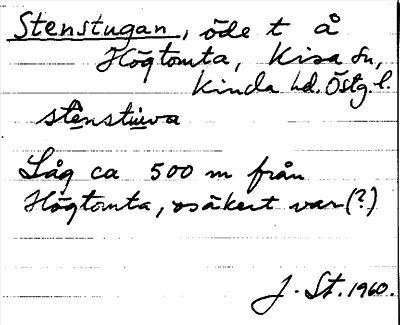 Stenstugan, öde t å
Högtomta, Kisa sn,
Kinda hd. Östg l.
stenstuva
Låg ca 500 m från
Högtomta, osäkert var (?)
J. St. 1960.